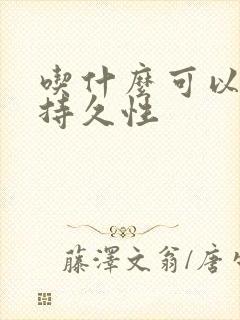 喫什麼可以
持久性
藤澤文翁/唐